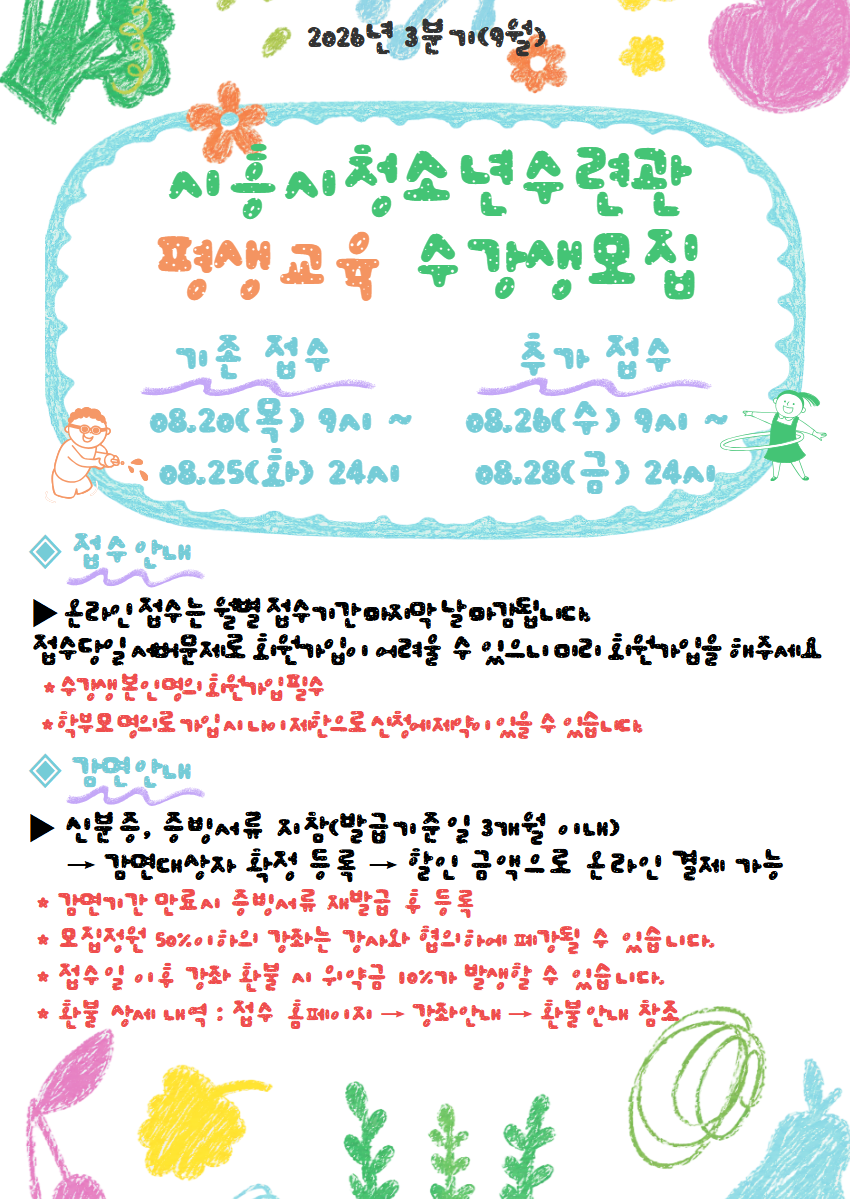 2026년 3분기(9월)
시흥시청소년수련관
평생교육 수강생모집
기존 접수
추가 접수
08.20(목) 9시 ~
08.25(화) 24시
08.26(수) 9시 ~
08.28(금) 24시
접수안내
▶온라인 접수는 월별 접수기간 마지막 날 마감됩니다.
접수당일 서버문제로 회원가입이 어려울 수 있으니 미리 회원가입을 해주세요
* 수강생 본인명의 회원가입 필수
* 학부모 명의로 가입 시 나이 제한으로 신청에 제약이 있을 수 있습니다
감면안내
▶ 신분증, 증빙서류 지참(발급기준일 3개월 이내)
→ 감면대상자 확정 등록 → 할인 금액으로 온라인 결제 가능
* 감면기간 만료시 증빙서류 재발급 후 등록
* 모집정원 50%이하의 강좌는 강사와 협의하에 폐강될 수 있습니다.
* 접수일 이후 강좌 환불 시 위약금 10%가 발생할 수 있습니다.
* 환불 상세내역 : 접수 홈페이지 → 강좌안내 → 환불안내 참조